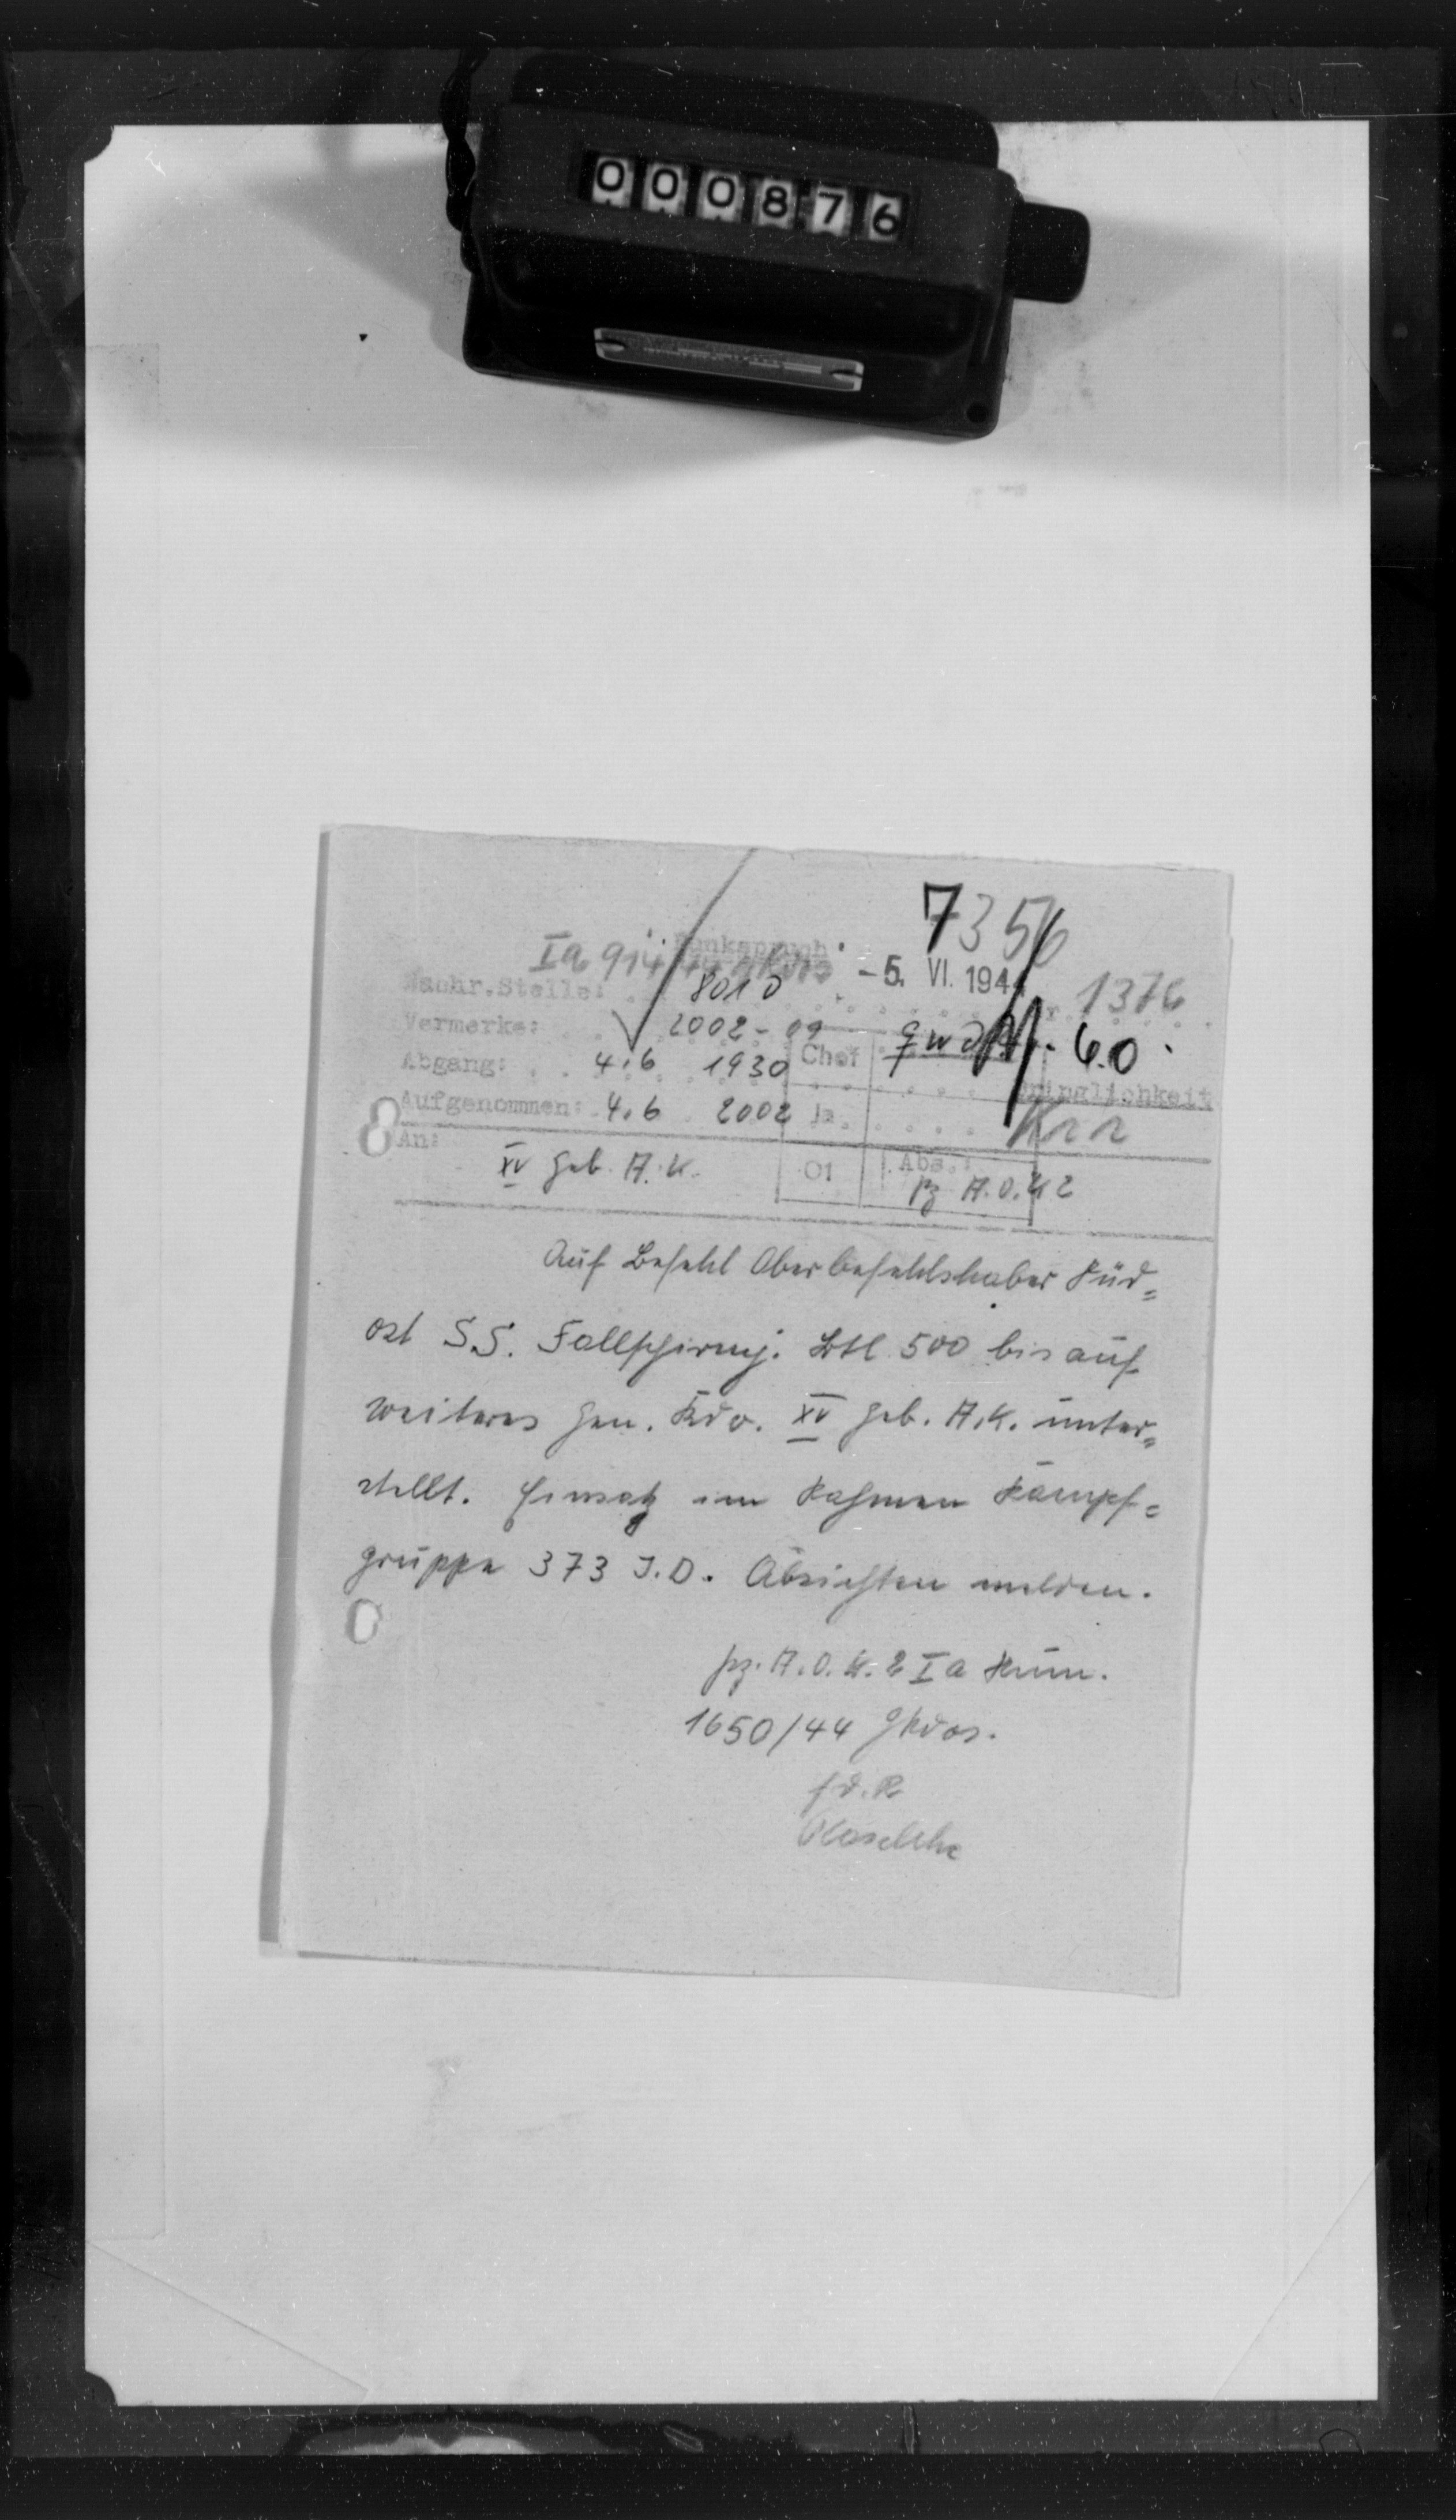 000876
7356
Funkspruch
Ia 914/44 gKdos
- 5. VI. 1944
Nachr.Stelle: 8010
Nr. 1376
Vermerke: 2002 - 09
Abgang: 4.6 1930
Chef
6.0
Dringlichkeit
Aufgenommen: 4.6 2002
Ia
Krr
An:
XV Geb. A.K.
O1
Abs.:
Pz A.O.K 2
Auf Befehl Oberbefehlshaber Süd=
ost SS. Fallschirmj. Btl. 500 bis auf
weiteres Gen. Kdo. XV Geb. A.K. unter=
stellt. Einsatz im Rahmen Kampf=
gruppe 373 I.D. Absichten melden.
Pz. A.O.K. 2 Ia Num.
1650/44 gKdos.
f.d.R